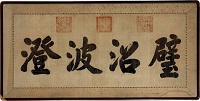 璧沼波澄